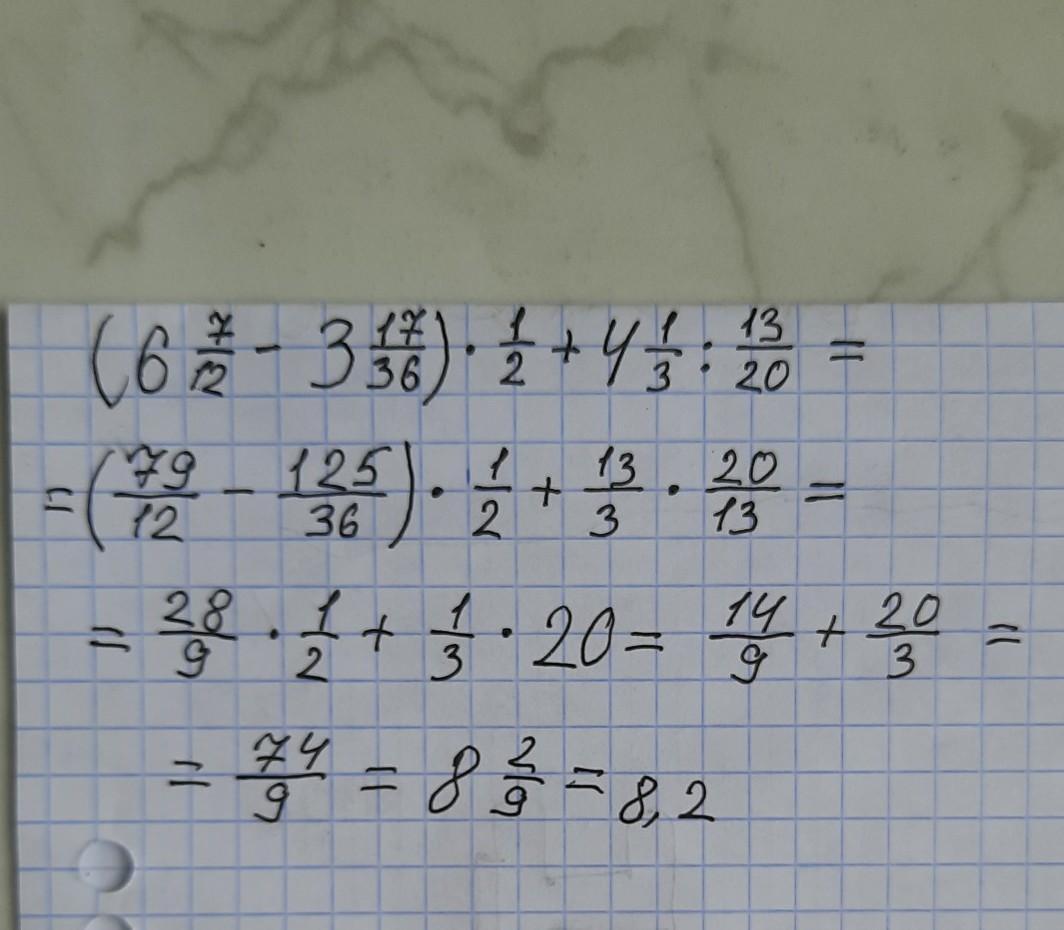 (6 7/12 - 3 17/36) · 1/2 + 4 1/3 : 13/20 =
= (79/12 - 125/36) · 1/2 + 13/3 · 20/13 =
= 28/9 · 1/2 + 1/3 · 20 = 14/9 + 20/3 =
= 74/9 = 8 2/9 = 8,2